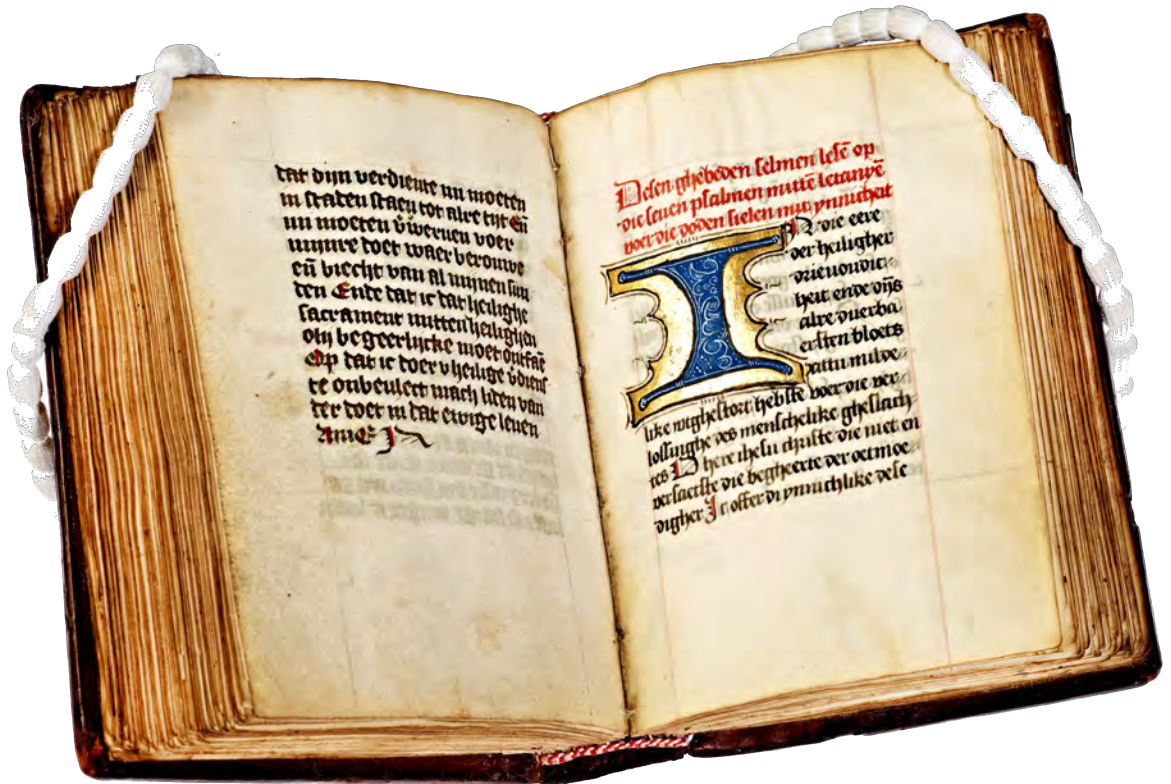 dat dijn verdiente nu moeten
in staden staen tot alre tijt En̄
nu moeten v̄weruen voer
mijnre doet waer berouwe
en̄ biecht van al mijnen sun
den Ende dat ic dat heilighe
sacrament mitten heilighen
oly begeerlijcke moet ontfaē
Op dat ic doer v heilige v̄dienſ
te onbeulect mach liden van
der doet in dat ewige leuen
Amē
Desen ghebeden selmen lesē op
die seuen psalmen mittē letanyē
voer die doden sielen mit ynnicheit
IN die eere
der heiligher
drieuoudic
heit ende dijs
alre duerba
ersten bloets
dattu milde
like wtghestort hebste voer die ver
lossinghe des menschelike gheslach
tes O here ihesu christe die niet en
versaetste die begheerte der oetmoe
digher Ic offer di ynnichlike dese